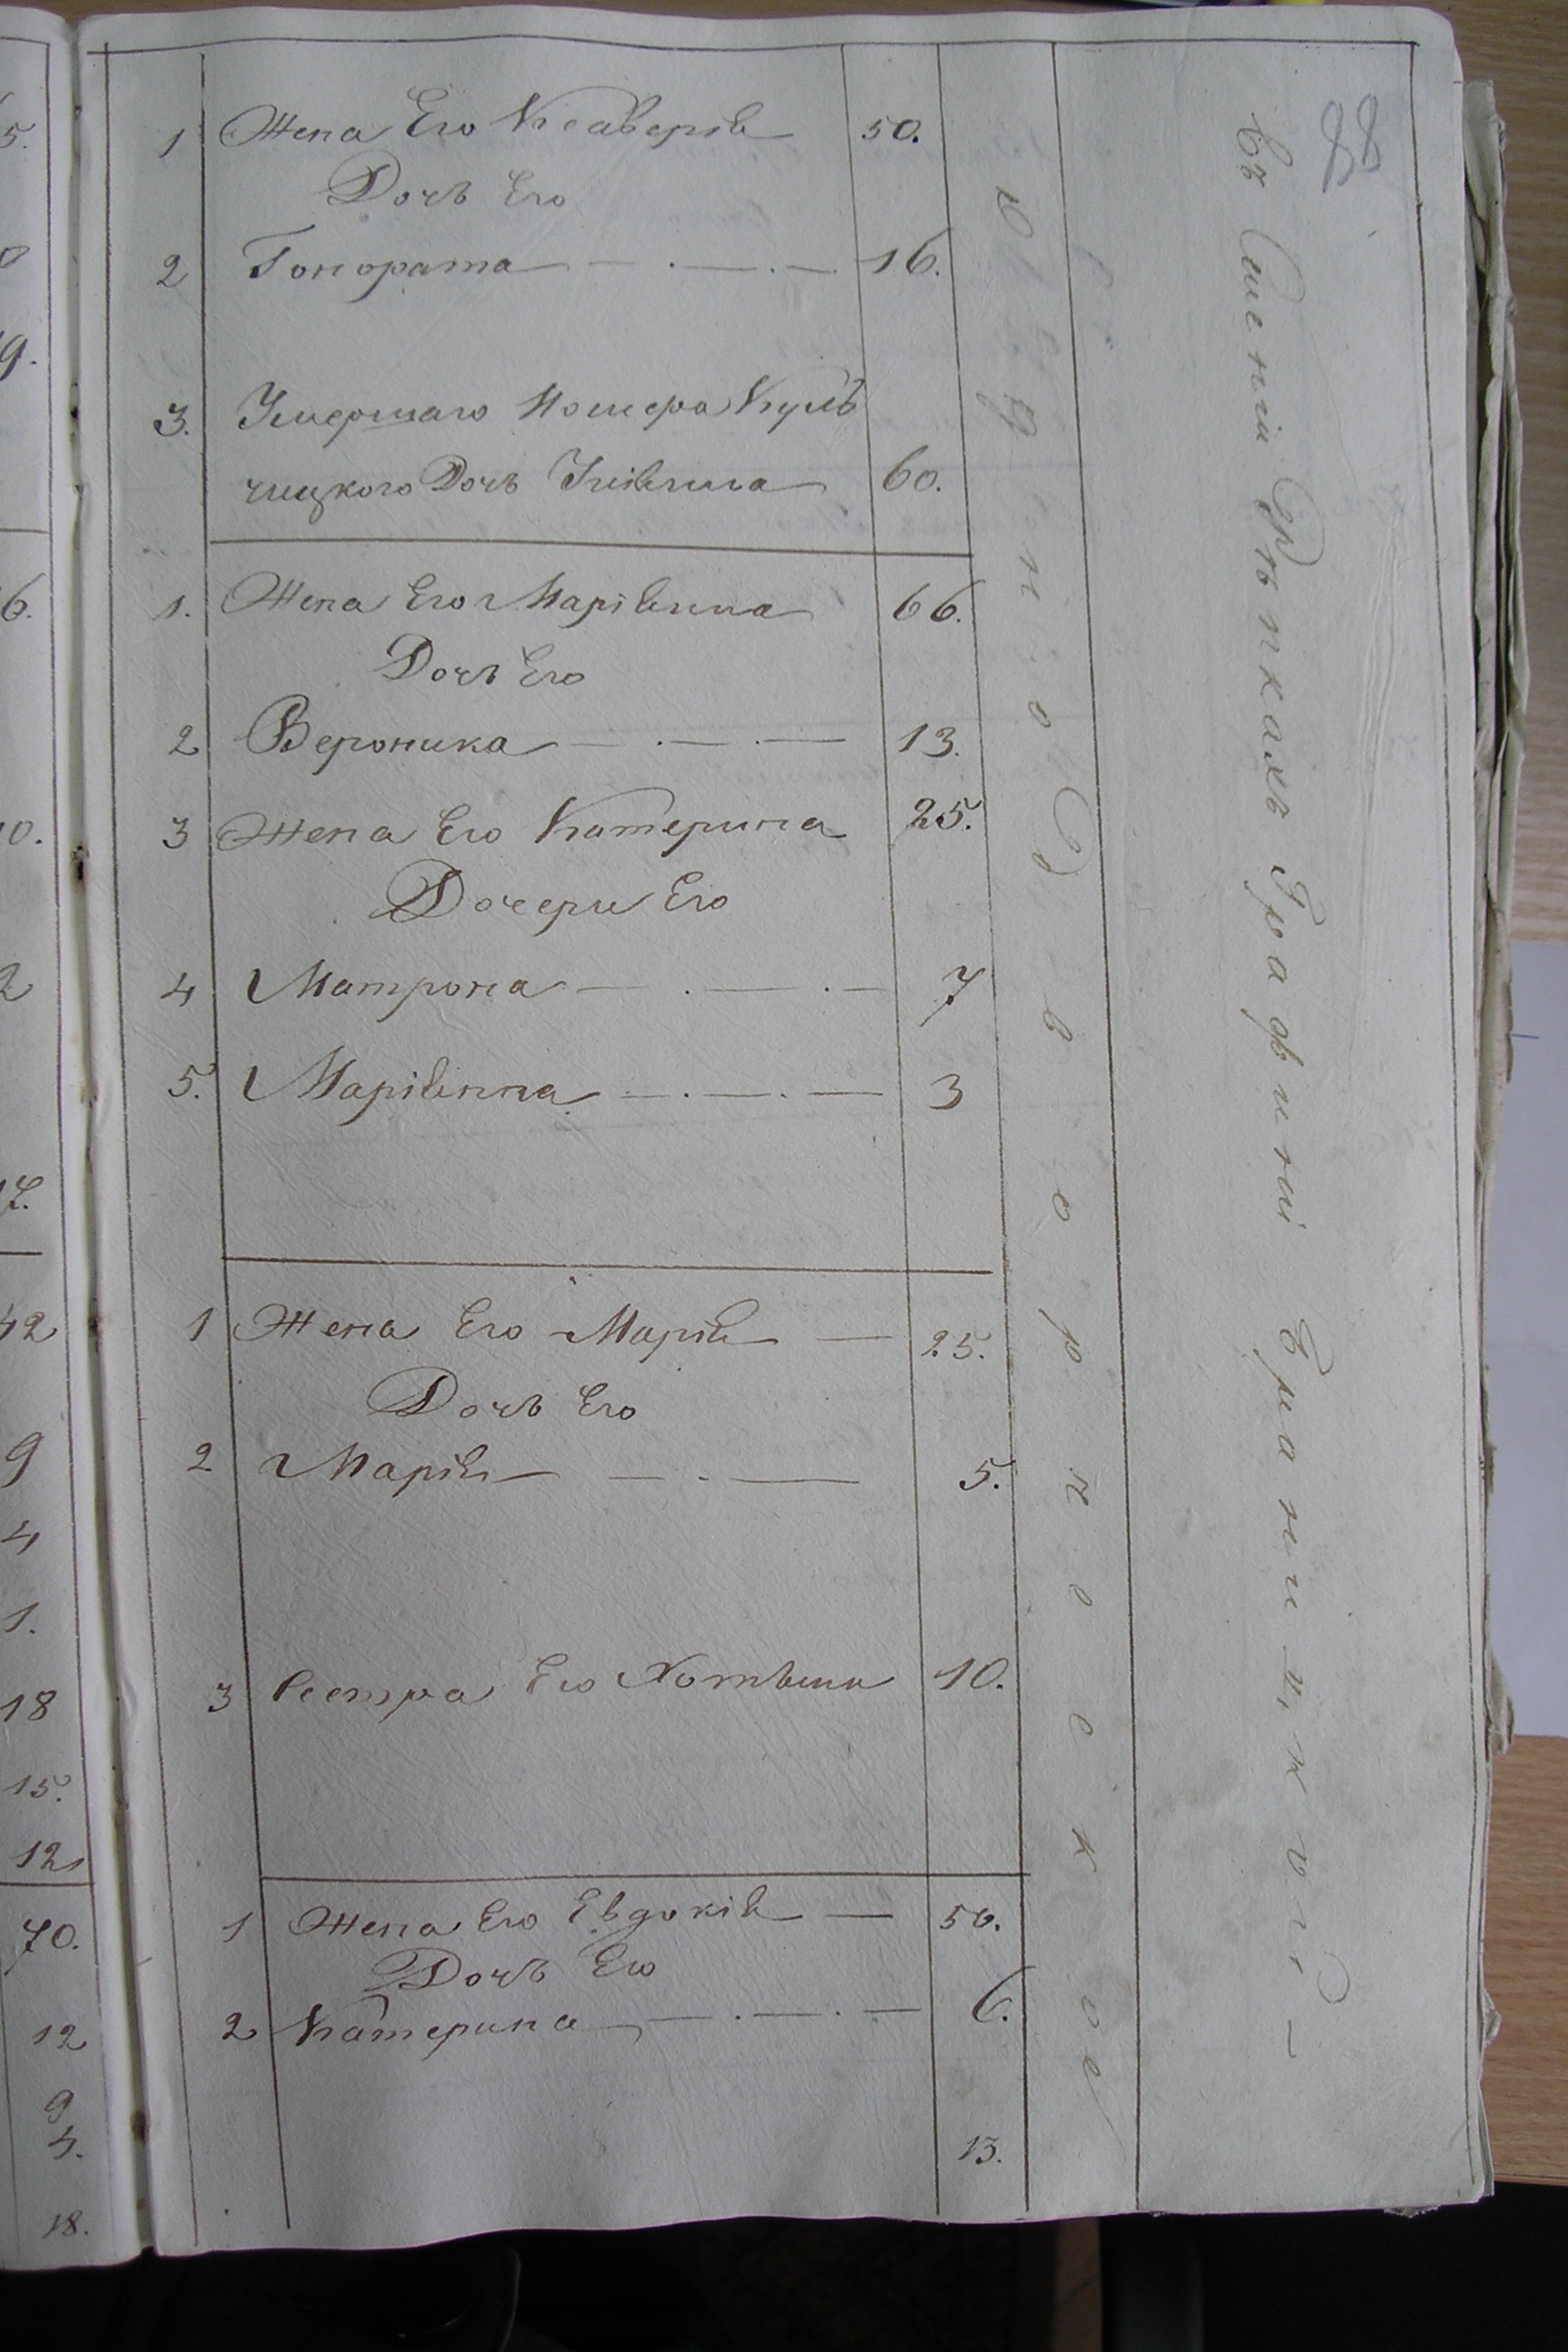 88
1 Жена Его Ксаверія 50.
Дочь Его
2 Гонората 16.
3. Умершаго Номера Куль
чицкого Дочь Уліянна 60.
1. Жена Его Маріянна 66.
Дочь Его
2 Вероника 13.
3 Жена Его Катерина 25.
Дочери Его
4 Матрона 7
5. Маріянна 3
1 Жена Его Марія 25.
Дочь Его
2 Марія 5.
3 Сестра Его 10.
1 Жена Его Евдокія 50.
Дочь Его
2 Катерина 6.
13.
Однодворческое
Въ Имении Графини
5.
9.
6.
0.
2
17.
42
9
4
1.
18
15.
12
70.
12
9
4.
18.